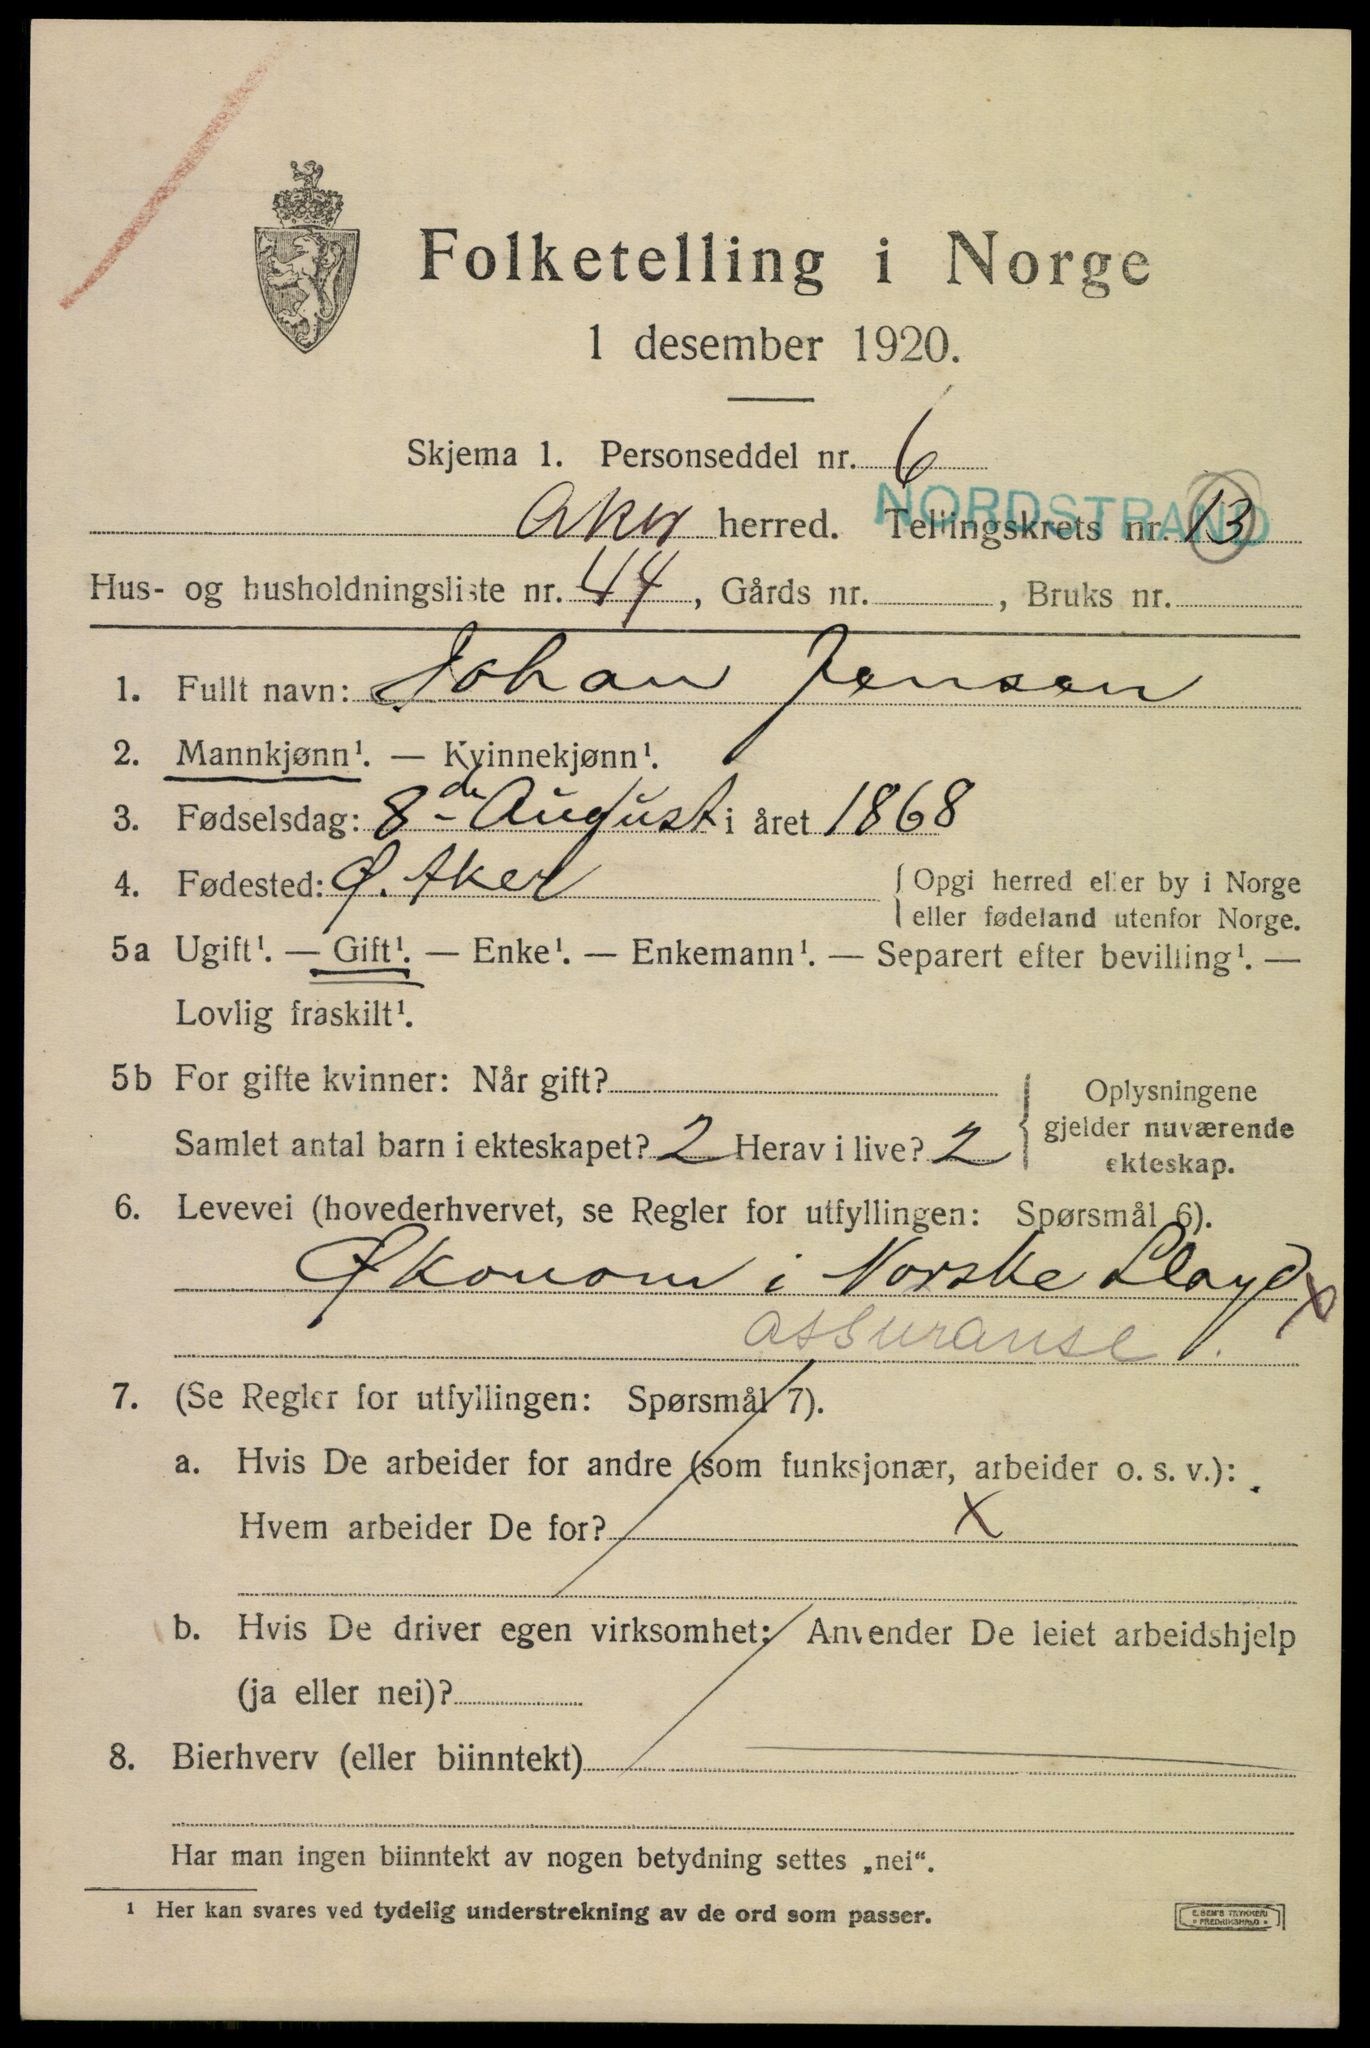 Folketelling i Norge
1 desember 1920.
Skjema 1. Personseddel nr. 6
NORDSTRAND
Aker herred. Tellingskrets nr. 13
Hus- og husholdningsliste nr. 44, Gårds nr. , Bruks nr.
1. Fullt navn: Johan Jensen
2. Mannkjønn¹. — Kvinnekjønn¹.
3. Fødselsdag: 8de August i året 1868
4. Fødested: Ø. Aker { Opgi herred eller by i Norge
eller fødeland utenfor Norge.
5a Ugift¹. — Gift¹. — Enke¹. — Enkemann¹. — Separert efter bevilling¹. —
Lovlig fraskilt¹.
5b For gifte kvinner: Når gift?
Samlet antal barn i ekteskapet? 2 Herav i live? 2
Oplysningene
gjelder nuværende
ekteskap.
6. Levevei (hovederhvervet, se Regler for utfyllingen: Spørsmål 6).
Økonom i Norske Lloyd x
assuranse
7. (Se Regler for utfyllingen: Spørsmål 7).
a. Hvis De arbeider for andre (som funksjonær, arbeider o. s. v.):
Hvem arbeider De for? x
b. Hvis De driver egen virksomhet: Anvender De leiet arbeidshjelp
(ja eller nei)?
8. Bierhverv (eller biinntekt)
Har man ingen biinntekt av nogen betydning settes „nei“.
¹ Her kan svares ved tydelig understrekning av de ord som passer.
E. SEM'S TRYKKERI
• FREDRIKSHALD •